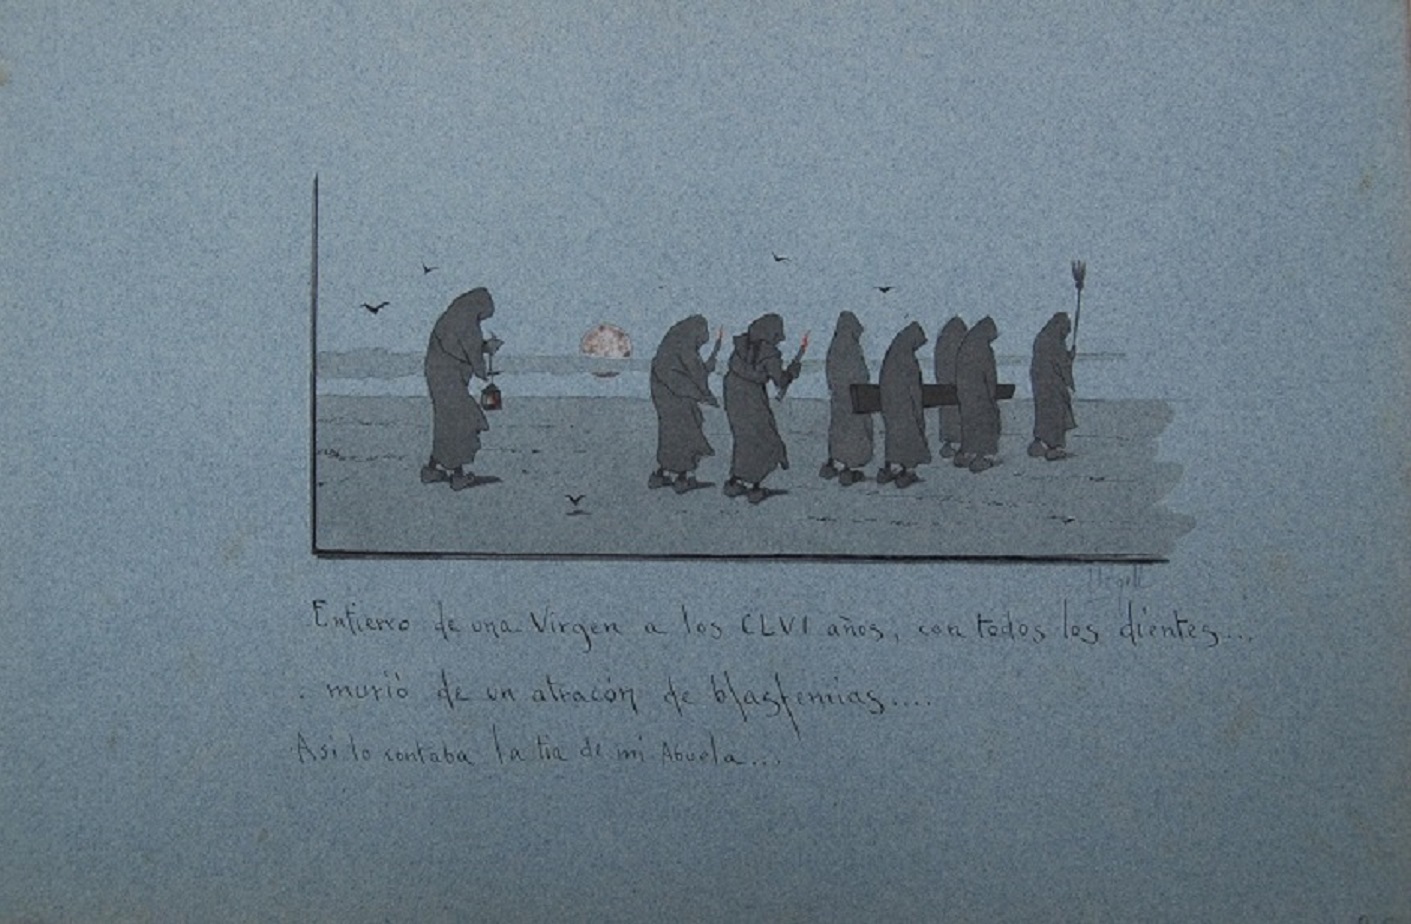 Urgell
Entierro de una Virgen a los CLVI años, con todos los dientes...
. murió de un atracón de blasfemias....
Asi lo contaba la tia de mi Abuela...